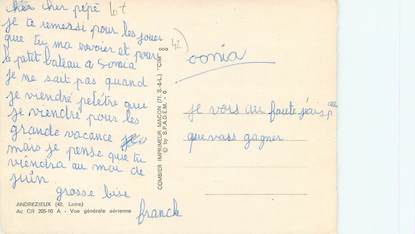 cher cher pépé
je te remersi pour les jouer
que tu ma envoier et pour
le petit bateau a Sonia
je ne sait pas quand
je viendré peletre que
je viendré pour les
grande vacance
mais je pense que tu
viendra au moi de
juin
grosse bise
franck
ANDREZIEUX (42, Loire)
Ac CR 205-10 A - Vue générale aérienne
COMBIER IMPRIMEUR MACON (71 S.-&-L.) "CIM"
© by S.P.A.D.E.M.
sonia
je vois au faute
que vass gagner